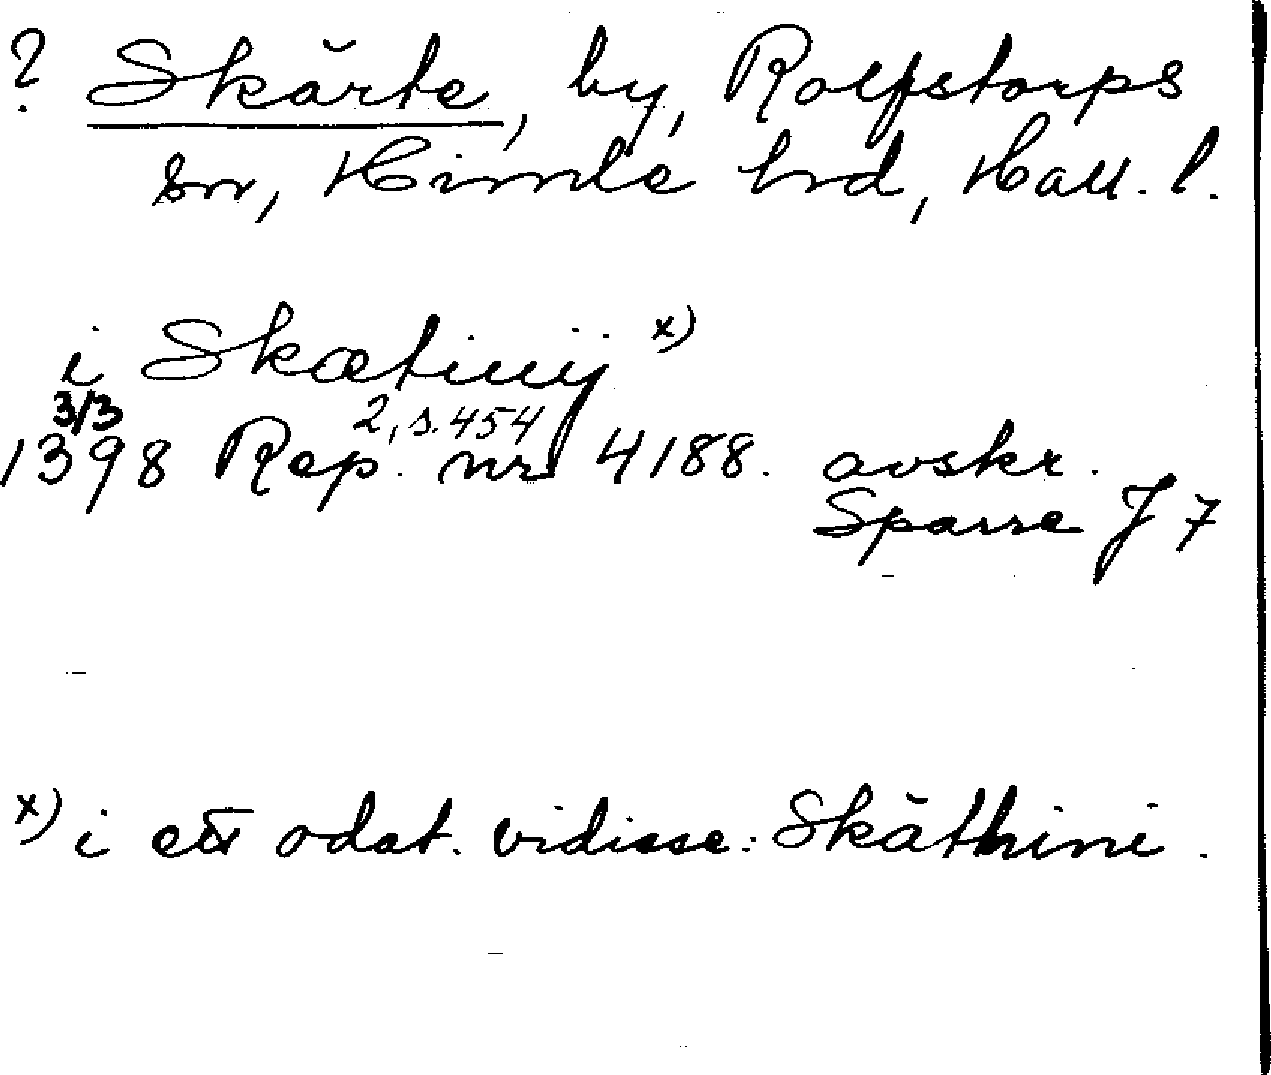 ? Skärte, by, Rolfstorps
sn, Himle hrd, Hall. l.
i Skætinij x)
3/3
1398 Rep. 2, s. 454 nr 4188. avskr.
Sparre J 7
x) i ett odat. vidisse: Skäthini.